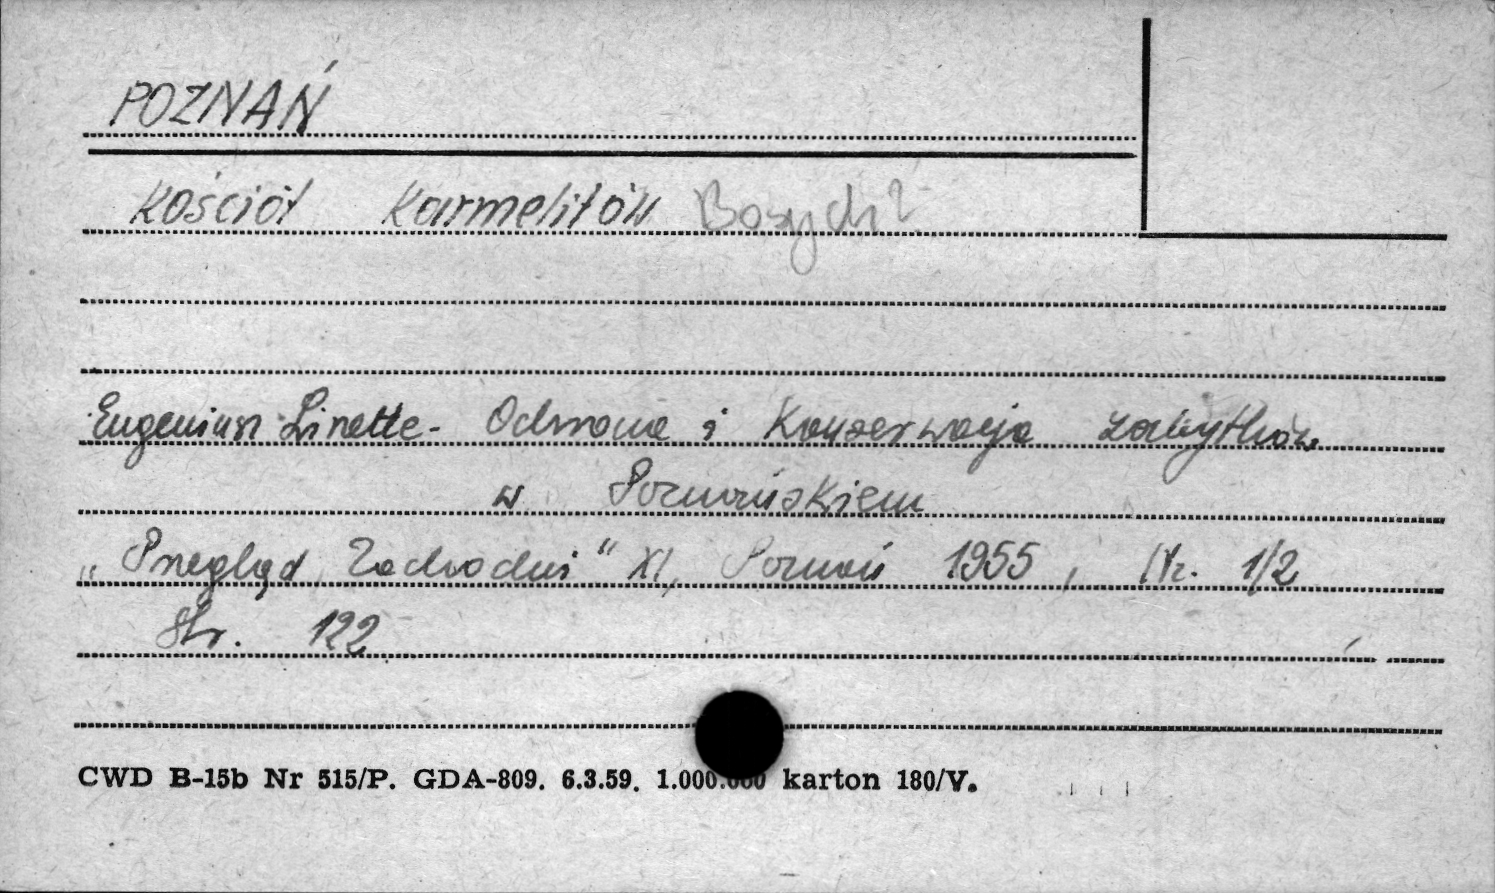 POZNAŃ
Kościół Karmelitów Bosych?
Eugeniusz Linette - Odnowa i Konserwacja zabytków
w Poznańskiem
„Przegląd Zachodni" XI, Poznań 1955, Nr. 1/2
Str. 122
CWD B-15b Nr 515/P. GDA-809. 6.3.59. 1.000.000 karton 180/V.